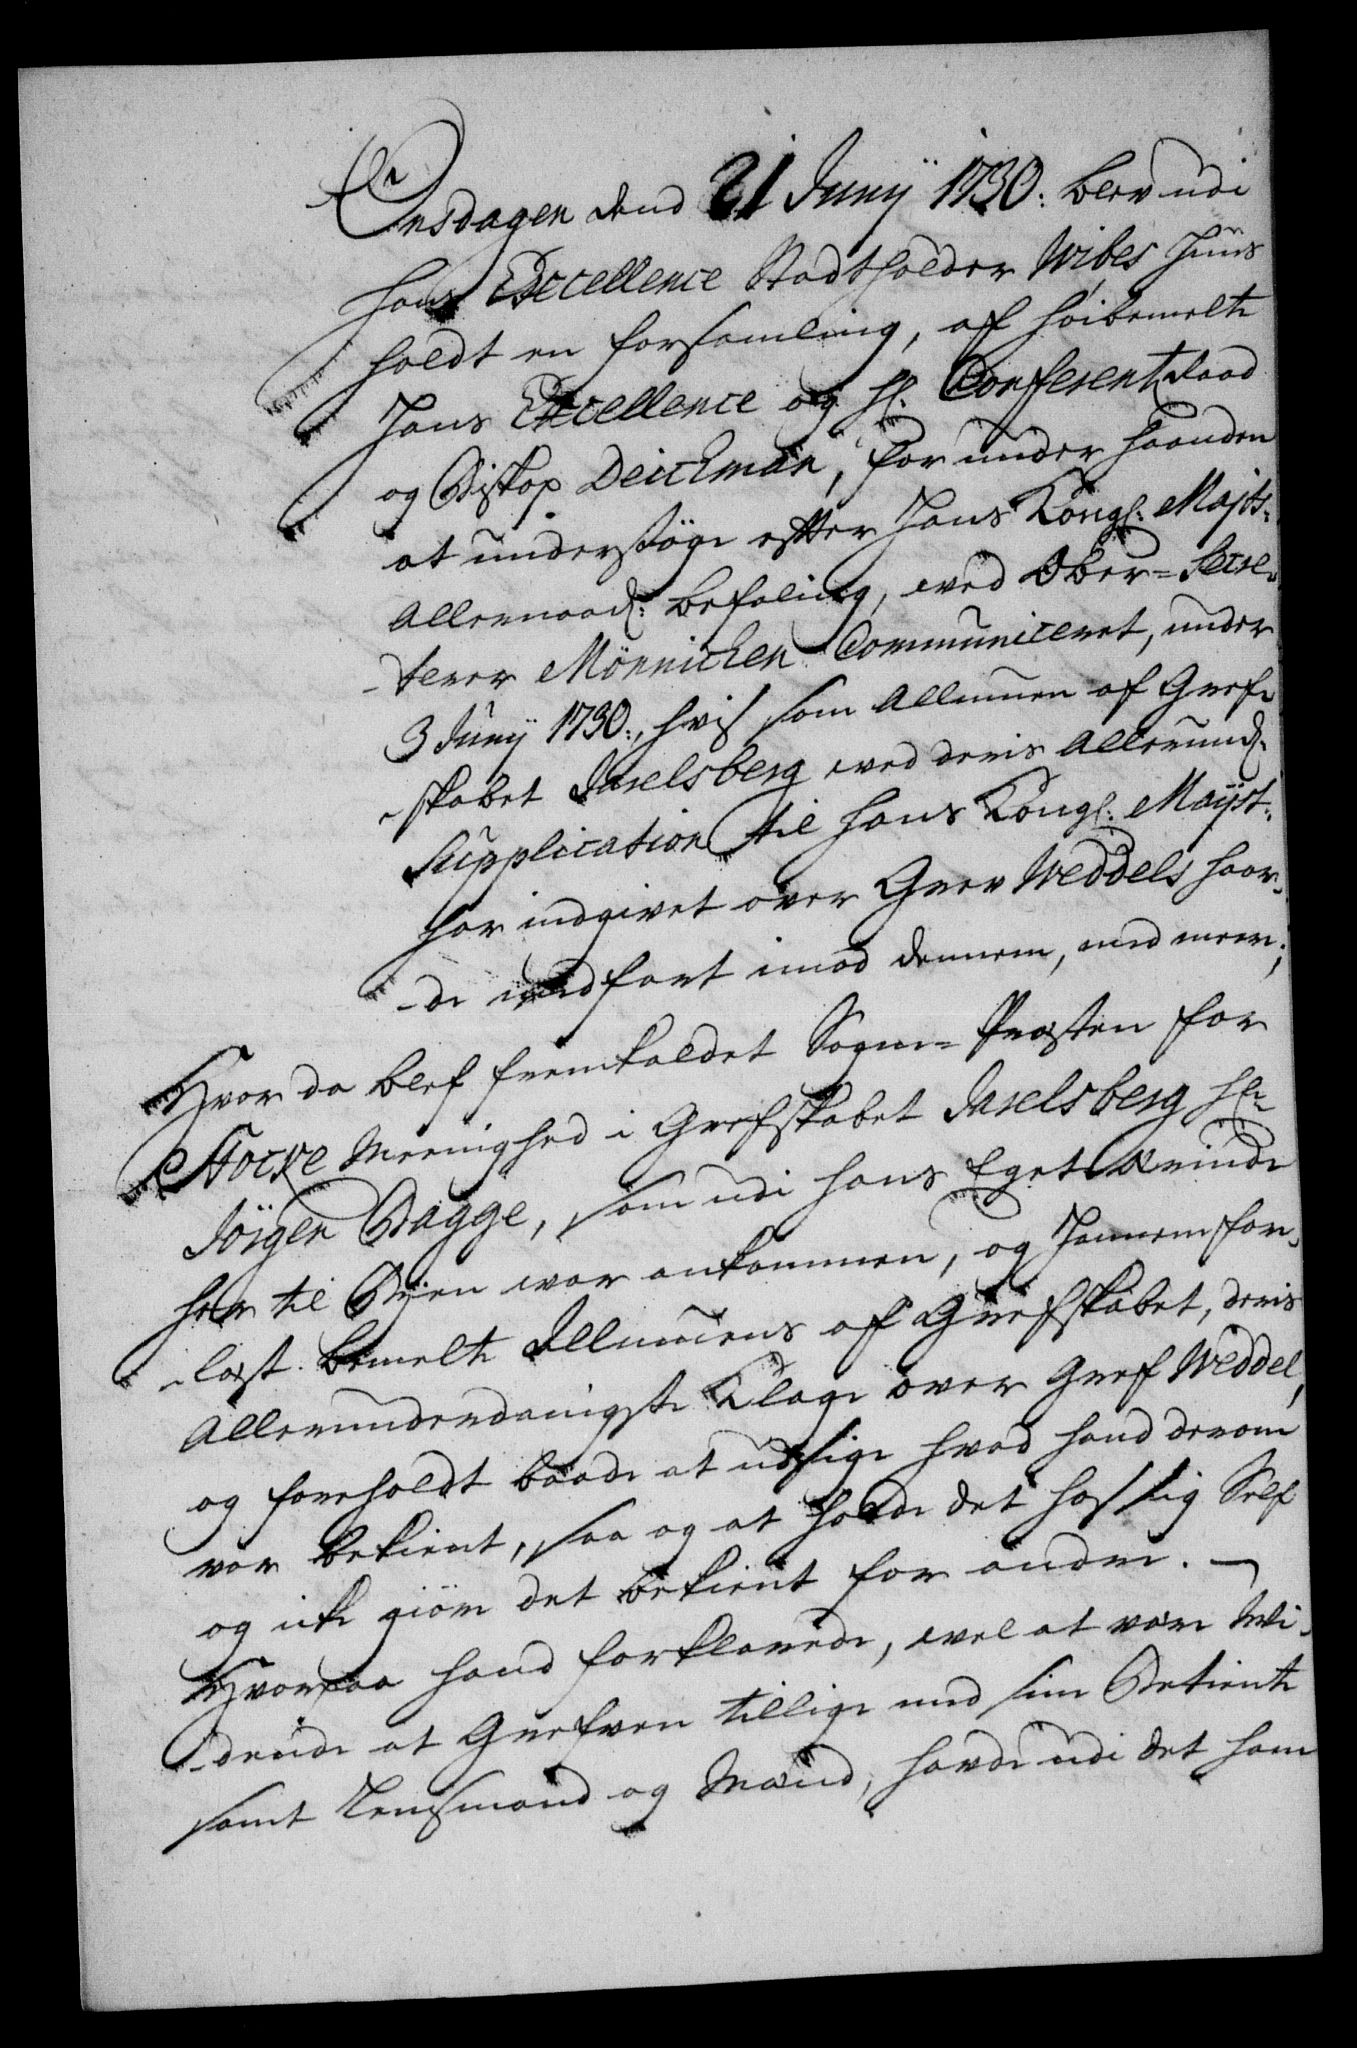 Onsdagen dend 21 Junÿ 1730: blev udi
hans Excellence Stadtholder Wibes Huus
holdt en forsamling, af høibemelte
Hans Excellence og Hl. Conferentz Raad
og Biskop Deichman, for under haanden
at undersøge efter Hans Kongl: Majts:
Allernaad: befaling, ved Ober-Secre-
-terer Mönnichen Communiceret, under
3 Junÿ 1730:, hvis som Almuen af Gref-
-skabet Jarelsberg ved deris Allerund:
Supplication til hans Kongl: Mayst:
har indgivet over Grev Weddels haar-
-de medfart imod dennem, med meere;
Hvor da blef fremkaldet Sogne-Præsten for
Stocke Meenighed i Grefskabet Jarelsberg Hr
Jörgen Bagge, som udi hans Eget Ærinde
her til Byen war ankommen, og Hannem for-
-læst bemelte Allmuens af Grefskabet, deris
Allerunderdanigste Klage over Gref Weddel,
og foreholdt baade at udsige hvad hand derom
var bekient, saa og at holde det hos sig Self
og icke giøre det bekient for andre. —
Hvorpaa hand forklarede, vel at være Wi-
-dende at Grefven tillige med sine Betiente
samt Lensmand og Mænd, havde udi det ham